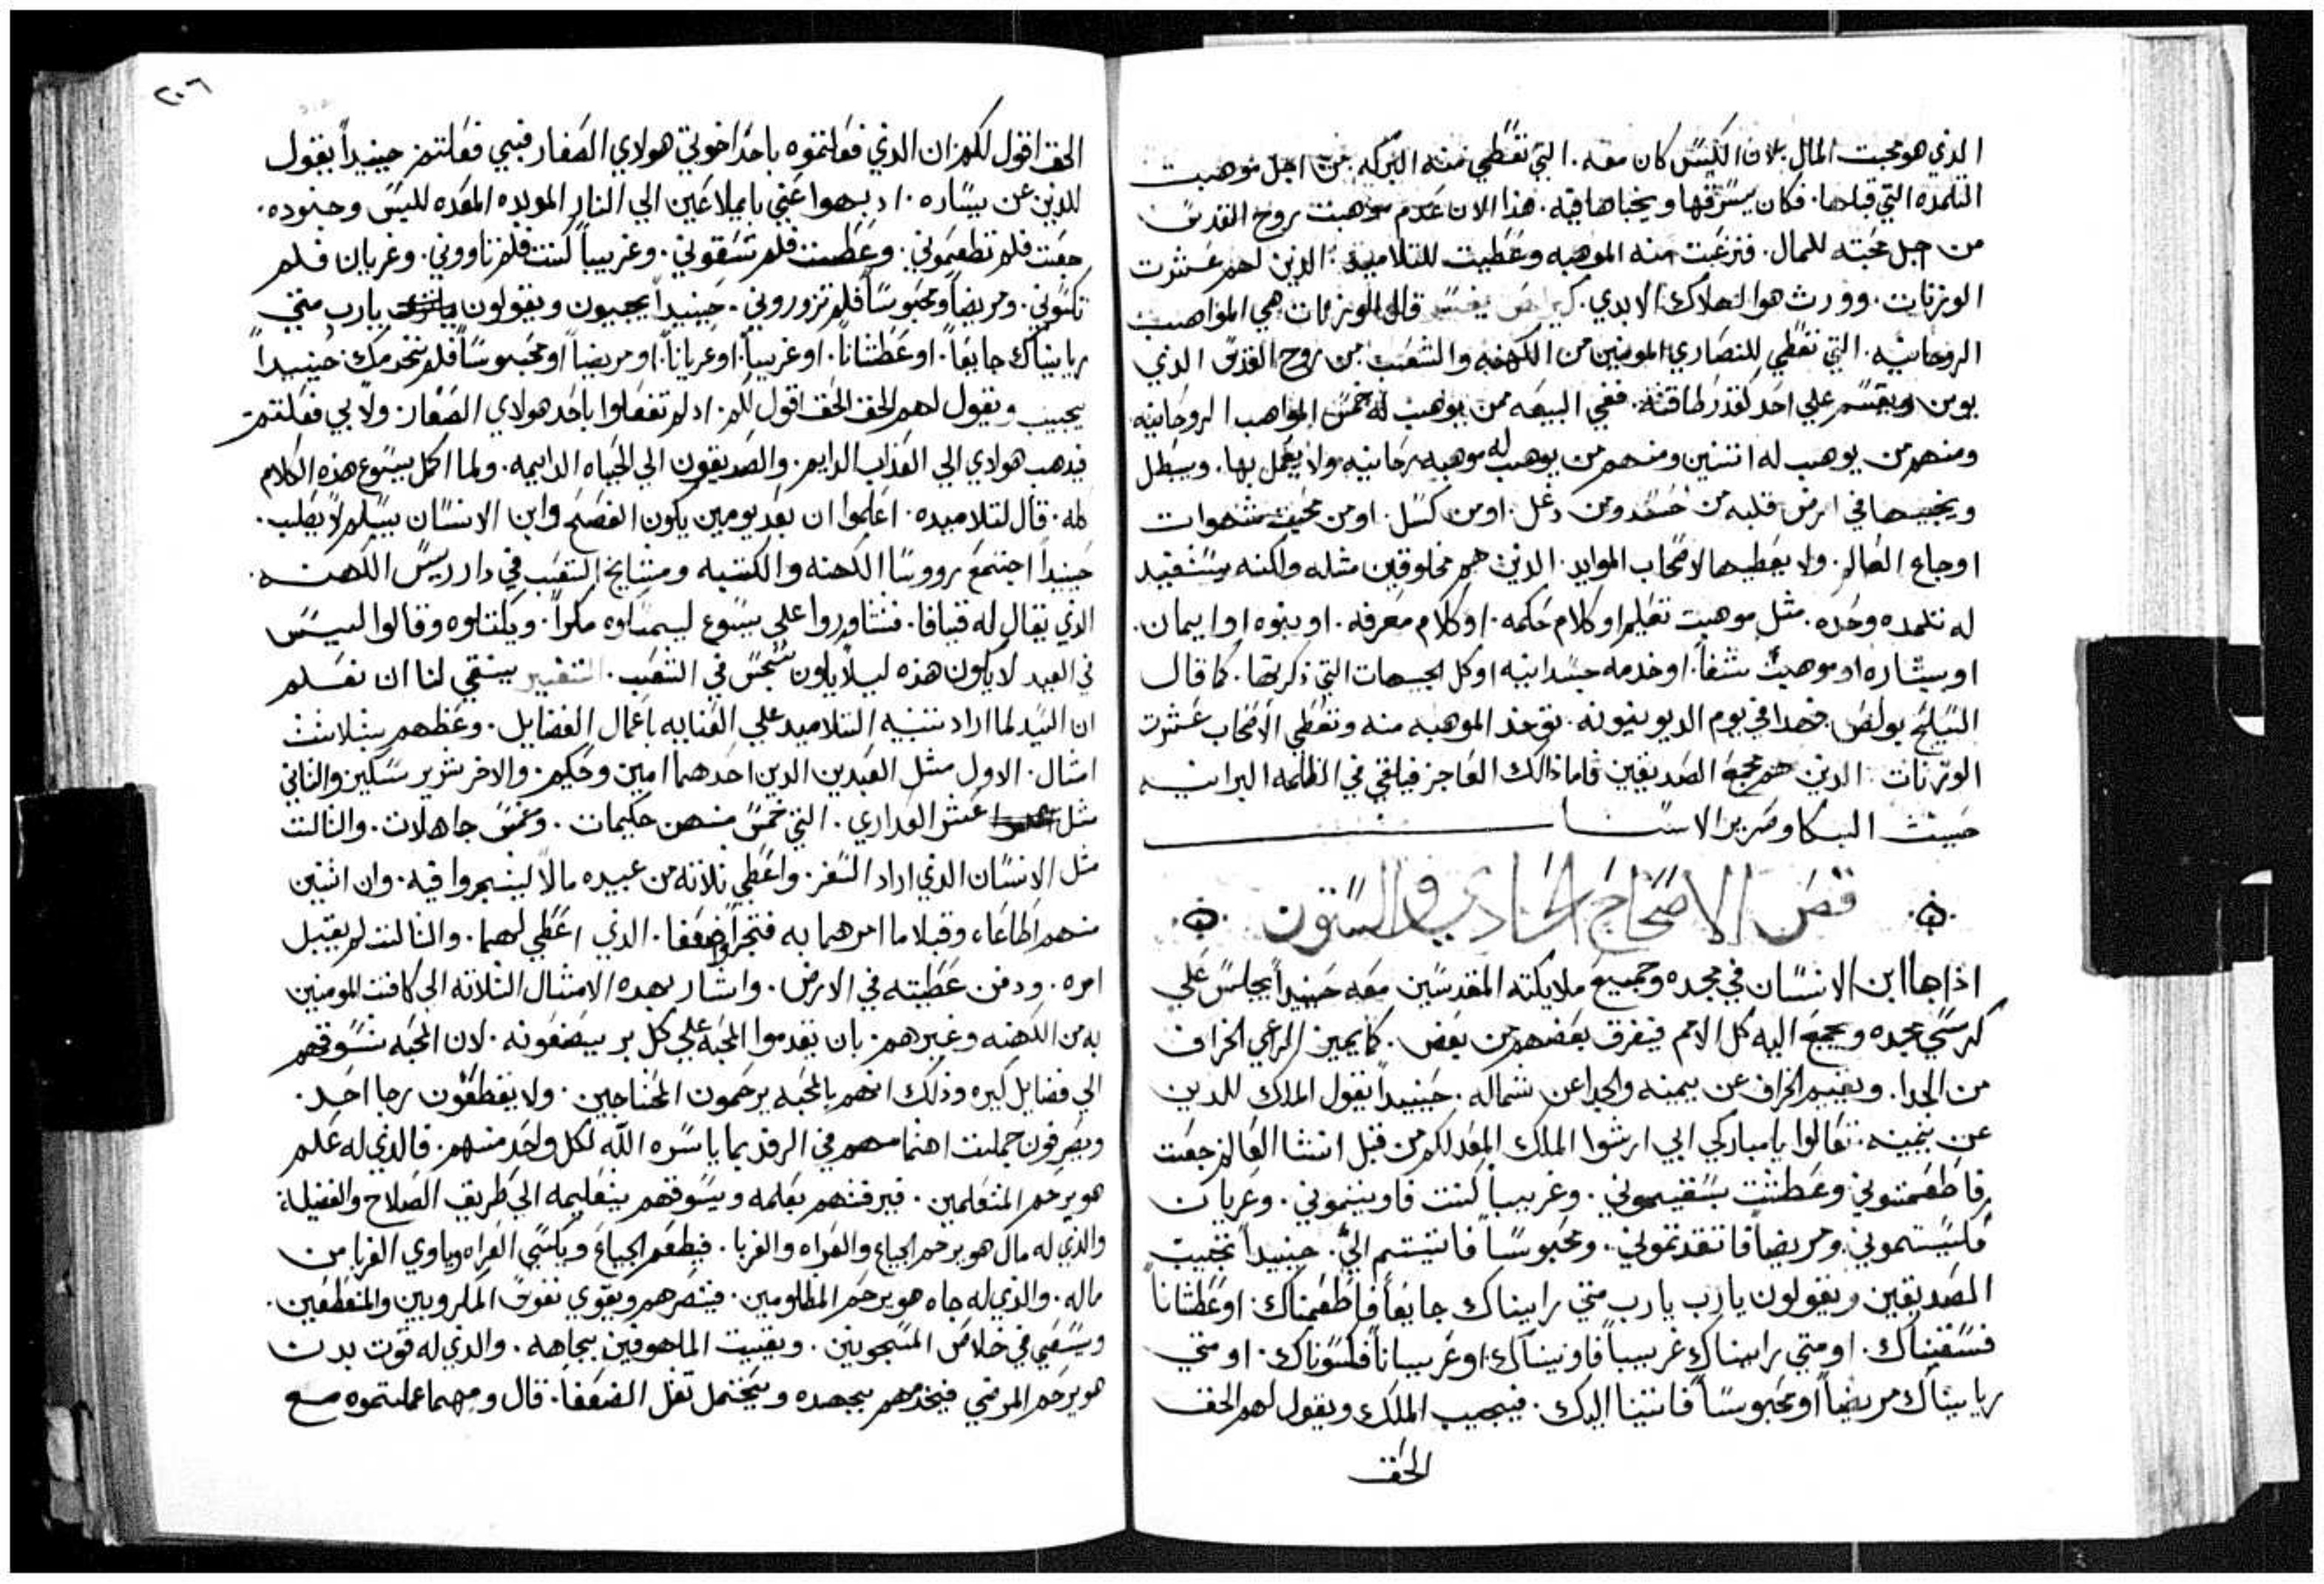 الذي هو محبت المال. لان الكيس كان معه. التي تعطي منه البركه من اجل موهبت
التلمده التي قبلها. فكان يسرقها ويخباها فيه. هذا الان عدم موهبت روح القدس
من اجل محبته للمال. فنزعت منه الموهبه وعطيت للتلاميد. الدين لهم عشرت
الوزنات. وورث هو الهلاك الابدي. قال الوزنات هي المواهب
الروحانيه. التي تعطي للنصاري المومنين من الكهنه والشعب. من روح القدس الذي
يومن ويقسم علي احد كقدر طاقته. ففي البيعه من يوهب له خمس المواهب الروحانيه
ومنهم من يوهب له اتنتين ومنهم من يوهب له موهبه رحانيه ولا يعمل بها. ويبطل
ويخبيها في ارض قلبه من حسد ومن دغل. اومن كسل. اومن محبت شهوات
اوجاع العالم. ولا يعطيها لاصحاب الموايد. الدين هم مخلوقين مثله ولكنه يستفيد
له تلمده وحده. مثل موهبت تعليم او كلام حكمه. اوكلام معرفه. او نبوه او ايمان.
او بشاره او موهبت شفا. او خدمه جسدانيه او كل الجهات التي ذكرتها. كما قال
السليح بولص فهدا في يوم الديونيونه. توخد الموهبه منه وتعطي لاصحاب عشرت
الوزنات. الدين هم مجمع الصديقين فاما ذالك العاجز فيلقي في الظلمه البرانيه
حيث البكا وصرير الاسنان
فص الاصحاح الحادي والستون
اذا جا ابن الانسان في مجده وجميع ملايكته المقدسين معه حينيداً يجلس علي
كرسي مجده ويجمع اليه كل الامم فيفرق بعضهم من بعض. كما يميز الراعي الخراف
من الجدا. ويقيم الخراف عن يمينه والجدا عن شماله. حينيداً يقول الملك للدين
عن يمينه. تعالوا يا مباركي ابي ارثوا الملك المعد لكم من قبل انشا العالم جعت
فاطعمتوني وعطشت بسقيموني. وغريباً كنت فاويتموني. وعريان
فكسيتموني ومريضاً فاتقدتموني. ومحبوساً فاتيتم اليّ. حينيداً تجيب
الصديقين ويقولون يارب يارب متي رايناك جايعاً فاطعمناك. اوعطشاناً
فسقيناك. اومتي رايناك غريباً فاويناك. اوعريياناً فكسوناك. اومتي
رايناك مريضاً او محبوساً فاتينا اليك. فيجيب الملك ويقول لهم الحق
الحق
٢٠٦
الحق اقول لكم ان الذي فعلتموه باحد اخوتي هولاي الصغار فبي فعلتم. حينيداً يقول
للدين عن يساره. ادهبوا عني يا ملاعين الي النار الموبده المعده لابليس وجنوده.
جعت فلم تطعموني. وعطست فلم تسقوني. وغريباً كنت فلم تاووني. وعريان فلم
تكسوني. ومريضاً ومحبوساً فلم تزوروني. حينيداً يجيبون ويقولون يارب متي
رايناك جايعاً. اوعطشاناً. اوغريباً. اوعرياناً. اومريضاً اومحبوساً فلم نخدمك. حينيداً
يجيب ويقول لهم الحق الحق اقول لكم. اد لم تفعلوا باحد هولاي الصغار ولا بي فعلتم
فيدهب هولاي الي العذاب الدايم. والصديقون الي الحياه الدايمه. ولما اكمل يسوع هذه الكلام
كله. قال لتلاميده. اعلموا ان بعد يومين يكون الفصح وابن الانسان يسلم لايصلب.
حينيداً اجتمع رووسا الكهنه والكتبه ومشايخ الشعب في دار رييس الكهنه.
الذي يقال له قيافا. فتشاوروا علي يسوع ليمسكوه مكراً. ويقتلوه وقالوا ليس
في العيد لا يكون هذه ليلا يكون شجس في الشعب. التفسير ينبقي لنا ان نعلم
ان السيد لما اراد تنبيه التلاميد علي العنايه باعمال الفضايل. وعظهم بثلاثث
امثال. الاول مثل العبدين الدين احدهما امين وحكيم. والاخر شرير سكير. والثاني
مثل عشر العداري. التي خمس منهن حكيمات. وخمس جاهلات. والثالث
مثل الانسان الذي اراد السفر. واعطي ثلاثه من عبيده مالاً ليتجروا فيه. وان اثنين
منهم اطاعاه وقبلا ما امرهما به فتجرا وضعفا. الذي اعطي لهما. والثالث لم يقبل
امره. ودفن عطيته في الارض. واشار بهده الامثال الثلاثه الي كافت المومنين
به من الكهنه وغيرهم. بان يقدموا المحبه علي كل بر يصنعونه. لان المحبه تسوقهم
الي فضايل كيره وذلك انهم بالمحبه يرحمون المحتاجين. ولا يقطعون رجا احد.
ويصرفون جملت اهتمامهم في الرفد بما ياسره الله لكل واحد منهم. فالذي له علم
هو يرحم المتعلمين. فيرفدهم بعلمه ويسوقهم بتعليمه الي طريق الصلاح والفضيله
والذي له مال هو يرحم الجياع والعراه والغربا. فيطعم الجياع ويكسي العراه وياوي الغربا من
ماله. والذي له جاه هو يرحم المظلومين. فينصرهم ويقوي نفوس المكروبين والمنقطعين.
ويسعي في خلاص المسجونين. ويغيت الملهوفين بجاهه. والدي له قوت بدن
هو يرحم المرضي فيخدمهم بجهده ويحتمل ثقل الضعفا. قال ومهما عملتموه مع